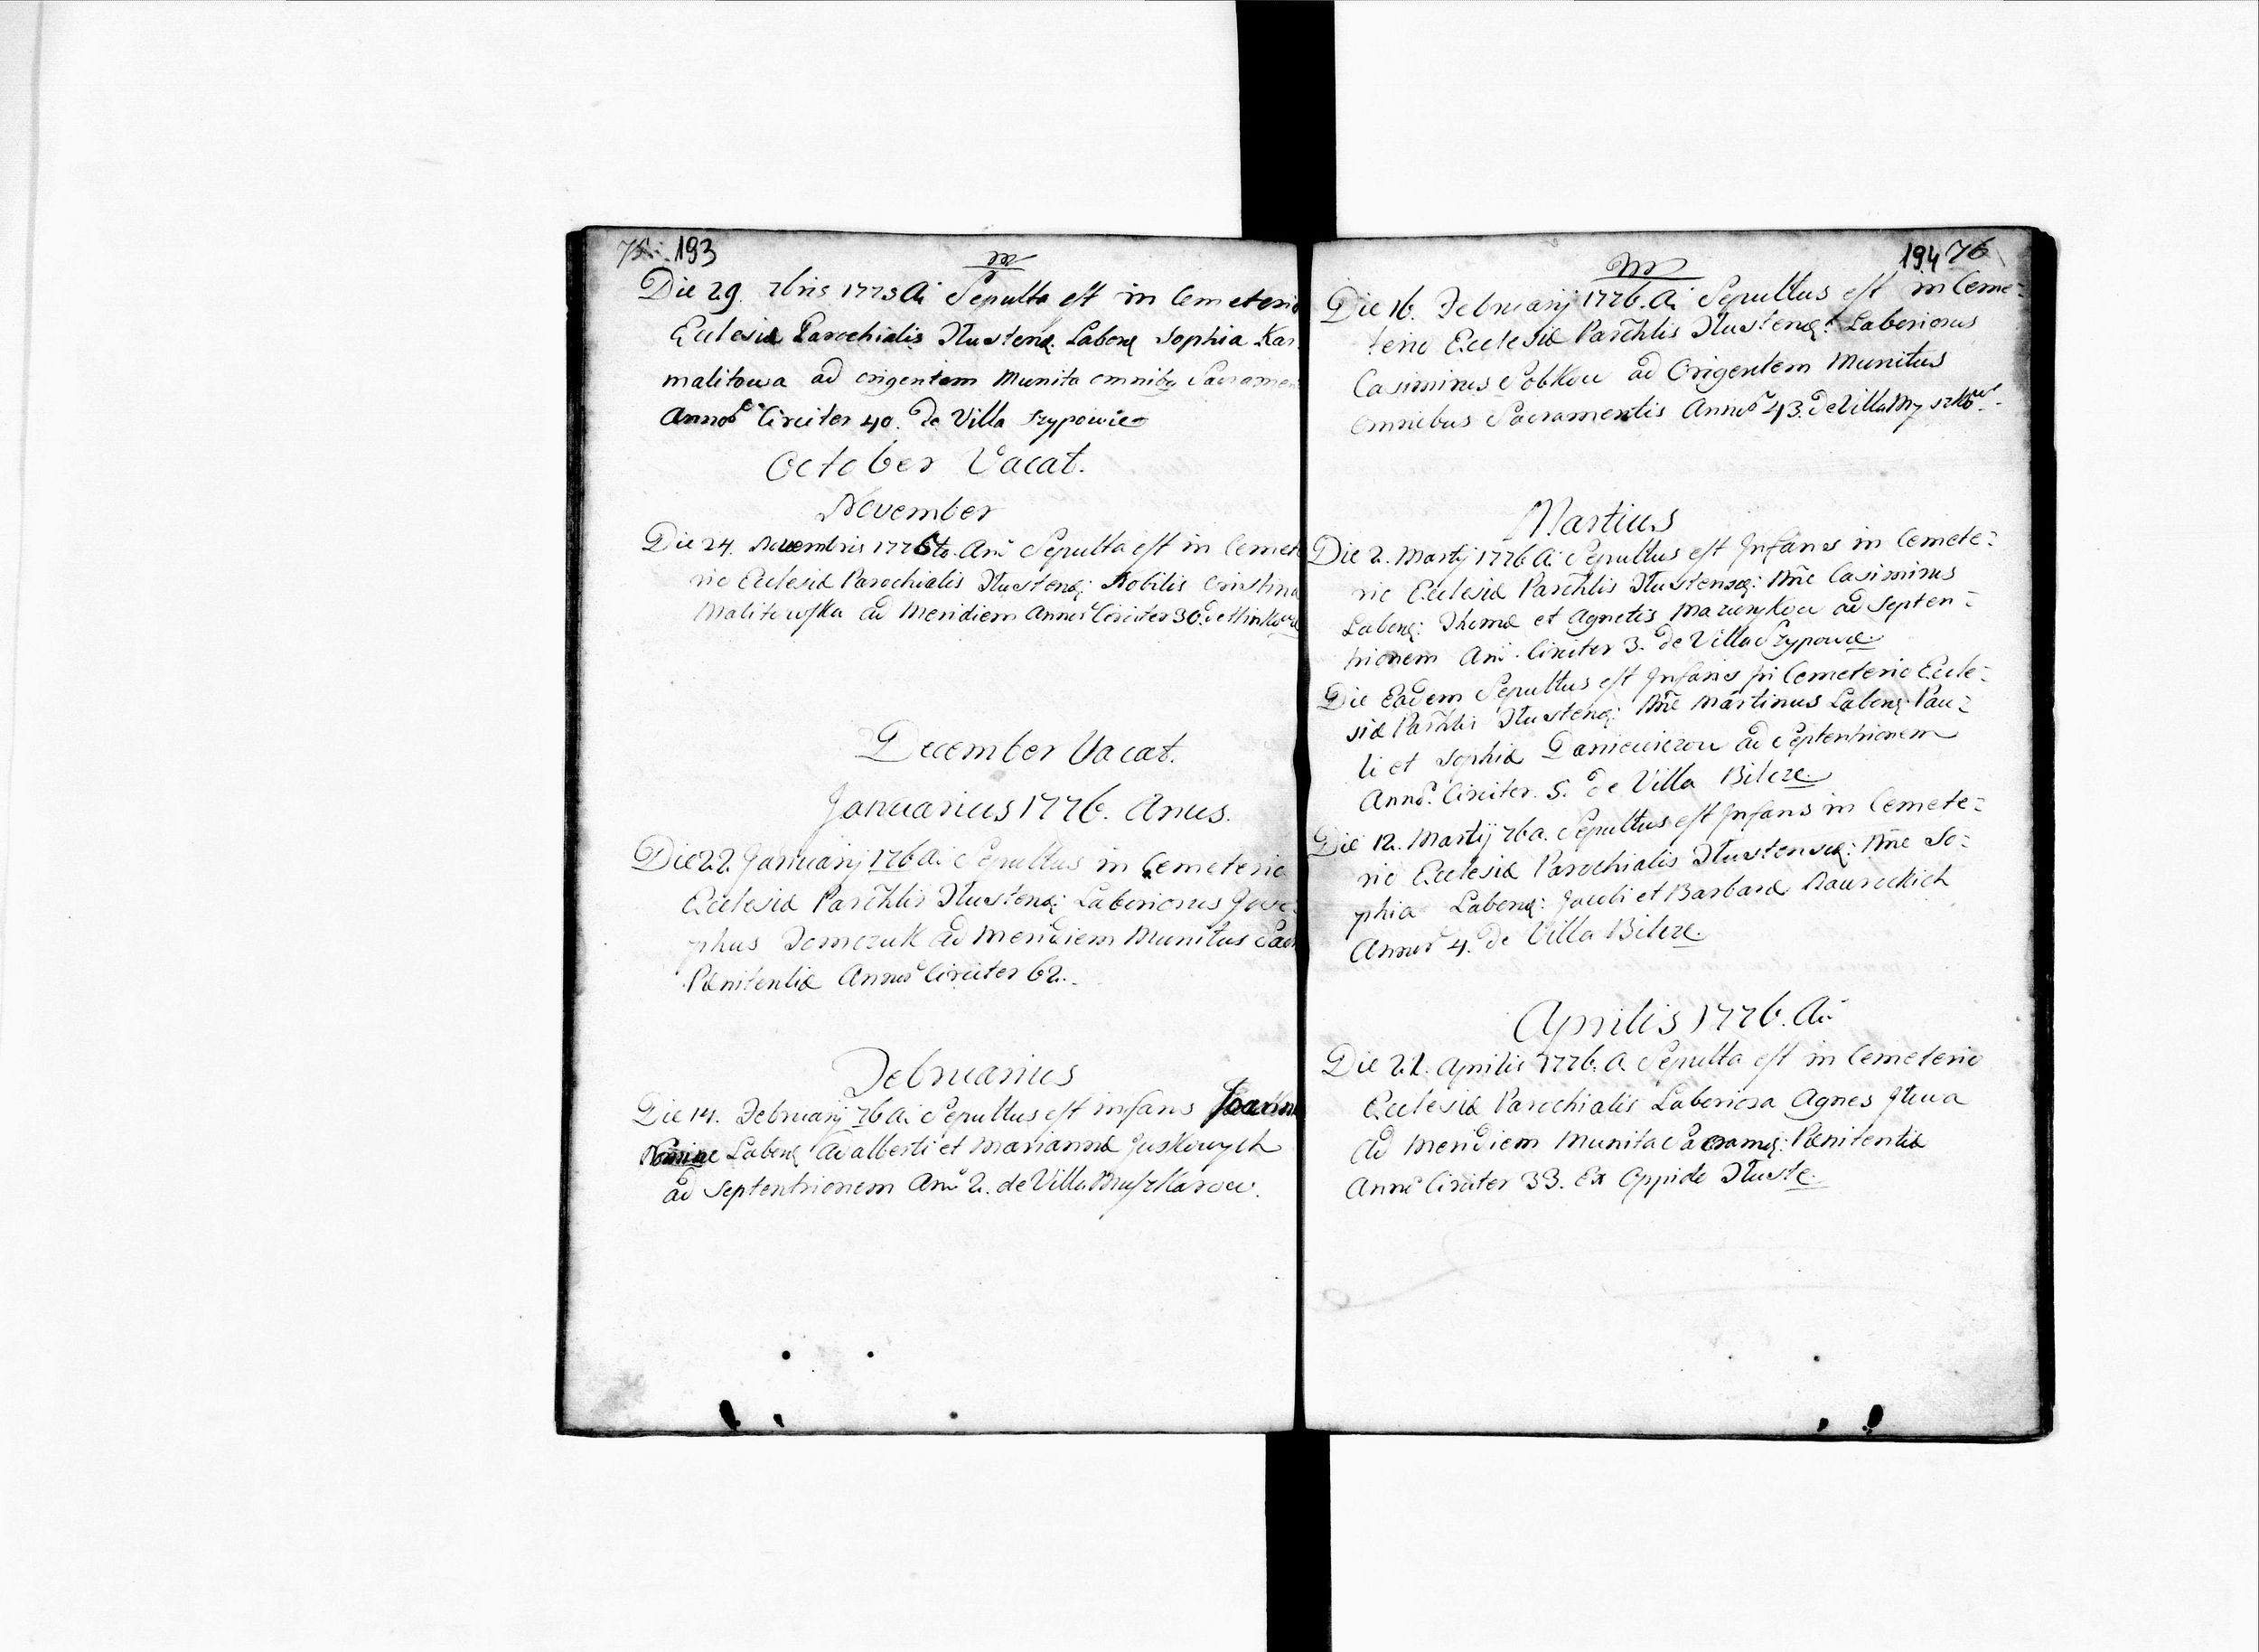 193
m
Die 29. 7bris 1775 Ai Sepulta est in Cemeterio
Ecclesiæ Parochialis Tłustensæ Labors Sophia Kar
malitowa ad origentem Munita omnibus Sacramen
Annor Circiter 40. de Villa Szypowie
October Vacat.
November
Die 24. Novembris 1775to. Ani Sepulta est in Cemet
rio Ecclesiæ Parochialis Tłustens: Nobilis Cristina
Malitowska ad Meridiem Annor Circiter 30. de
December Vacat.
Januarius 1776. Anus.
Die 22 Januarij 176 Ai Sepultus in Cemeterio
Ecclesiæ Parchlis Tłustens: Laboriosus Jose
phus Tomczuk ad Meridiem Munitus Sacr
Pænitentiæ Annor Circiter 62.
Februarius
Die 14. Februarij 76 Ai Sepultus est infans Joann
Nomine Labors Adalberti et Mariannæ Juskowych
ad Septentrionem Ani 2. de Villa Muszkarow.
194 76
m
Die 16. Februarij 1776. Ai Sepultus est in Ceme-
terio Ecclesiæ Parchlis Tłustens: Laboriosus
Casimirus Sobkow ad Origentem Munitus
Omnibus Sacramentis Annor 43. de Villa
Martius
Die 2. Martij 1776 Ai Sepultus est Infans in Cemete-
rio Ecclesiæ Parchlis Tłustensæ: Nne Casimirus
Labors: Thomæ et Agnetis Mazurykow ad Septen-
trionem Ani. Circiter 3. de Villa Szypowce.
Die Eadem Sepultus est Infans in Cemeterio Eccle-
siæ Parchlis Tłustens: Nne Martinus Labors Pau-
li et Sophiæ Daniewiczow ad Septentrionem
Annor. Circiter. 5. de Villa Bilcze.
Die 12. Martij 76 a. Sepultus est Infans in Cemete-
rio Ecclesiæ Parochialis Tłustensæ: Nne So-
phia Labors: Jacobi et Barbaræ Nawrockich
Annor 4. de Villa Bilcze.
Aprilis 1776. Ai
Die 22. Aprilis 1776. A. Sepulta est in Cemeterio
Ecclesiæ Parochialis Laboriosa Agnes Iłuwa
ad Meridiem Munita Sacrams: Pænitentiæ
Annor Circiter 33. Ex Oppido Tłuste.